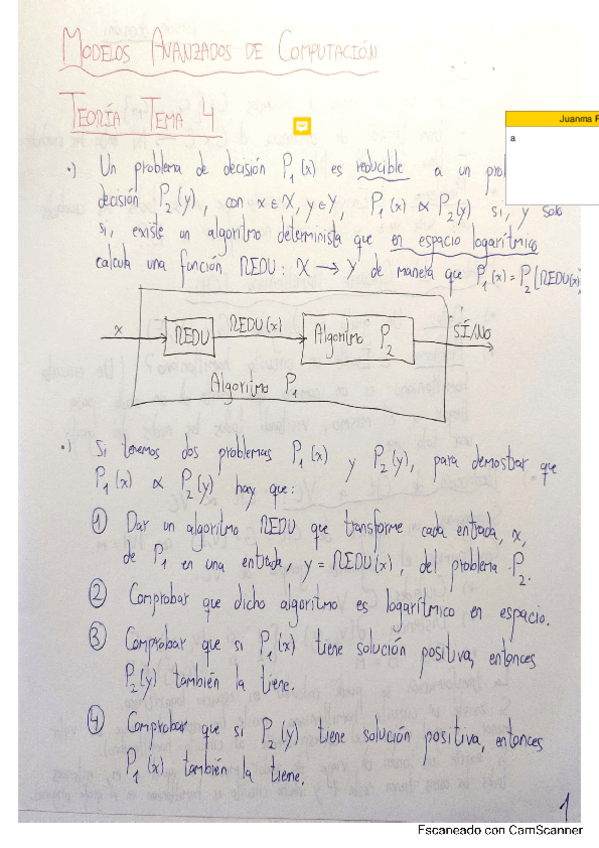 MODELOS AVANZADOS DE COMPUTACIÓN
TEORÍA TEMA 4
Juanma F
a
·) Un problema de decisión P₁(x) es reducible a un
decisión P₂(y), con x ∈ X, y ∈ Y, P₁(x) ∝ P₂(y) si, y solo
si, existe un algoritmo determinista que en espacio logarítmico
calcula una función REDU: X → Y de manera que P₁(x) = P₂(REDU(x)
x REDU REDU(x) Algoritmo P₂ SÍ/NO
Algoritmo P₁
·) Si tenemos dos problemas P₁(x) y P₂(y), para demostrar que
P₁(x) ∝ P₂(y) hay que:
① Dar un algoritmo REDU que transforme cada entrada, x,
de P₁ en una entrada, y = REDU(x), del problema P₂.
② Comprobar que dicho algoritmo es logarítmico en espacio.
③ Comprobar que si P₁(x) tiene solución positiva, entonces
P₂(y) también la tiene.
④ Comprobar que si P₂(y) tiene solución positiva, entonces
P₁(x) también la tiene.
1
Escaneado con CamScanner